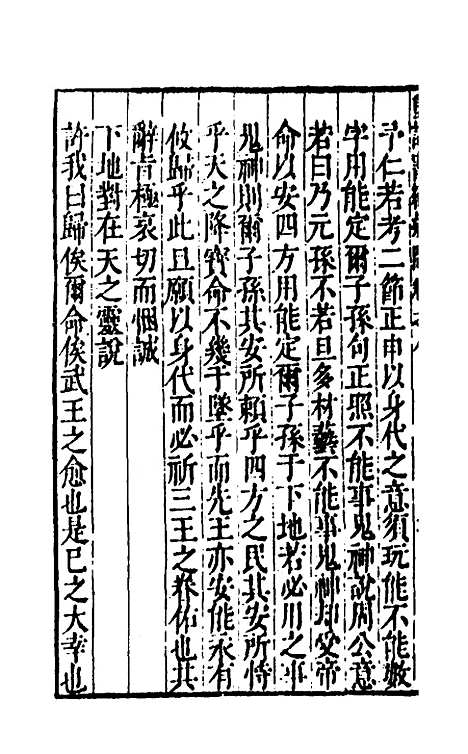 予仁若考二節正申以身代之意須玩能不能數
字用能定爾子孫句正照不能事鬼神說周公意
若曰乃元孫不若旦多材藝不能事鬼神且受帝
命以安四方用能定爾子孫于下地若必用之事
鬼神則爾子孫其安所賴乎四方之民其安所恃
乎天之降寶命不幾于墜乎而先王亦安能永有
攸歸乎此旦願以身代而必祈三王之眷佑也其
辭旨極哀切而悃誠
下地對在天之靈說
許我曰歸俟爾命俟武王之愈也是已之大幸也